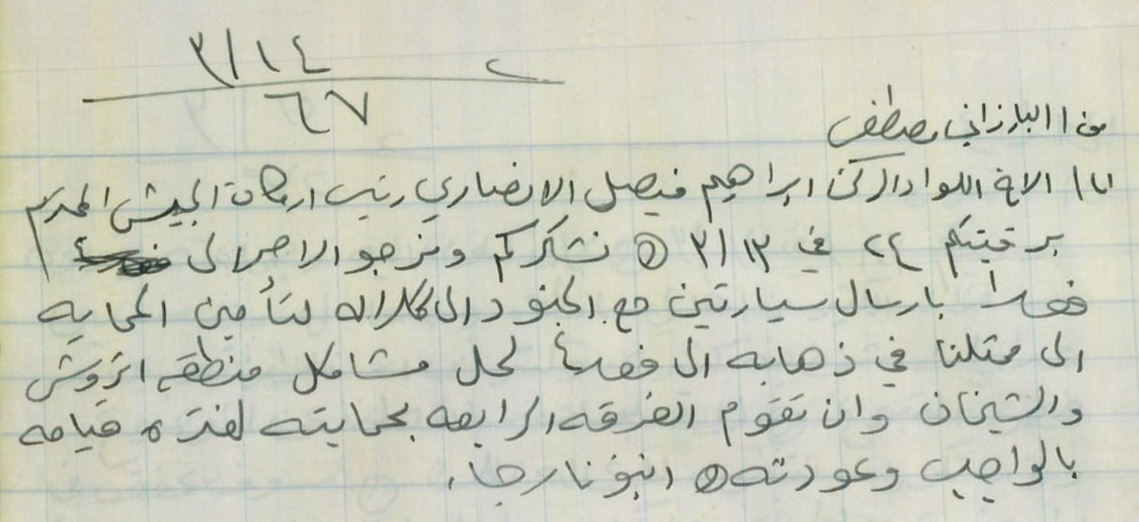 ٣/١٤
٦٧
من / البارزاني مصطفى
الى / الاخ اللواء الركن ابراهيم فيصل الانصاري رئيس اركان الجيش المحترم
برقيتكم ٢٤ في ٣/١٣ نشكركم ونرجو الامر الى
بارسال سيارتين مع الجنود الى كلاله لتأمين الحمايه
الى ممثلنا في ذهابه الى لحل مشاكل منطقه اتروش
والشيخان وان تقوم الفرقه الرابعه بحمايته لفتره قيامه
بالواجب وعودته انبؤنا رجاء.